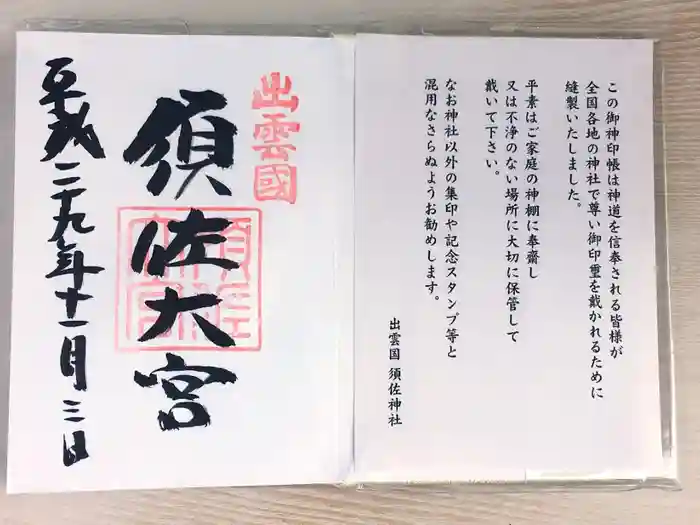 この御神印帳は神道を信奉される皆様が
全国各地の神社で尊い御印璽を戴かれるために
縫製いたしました。
平素はご家庭の神棚に奉齋し
又は不浄のない場所に大切に保管して
戴いて下さい。
なお神社以外の集印や記念スタンプ等と
混用なさらぬようお勧めします。
出雲国 須佐神社
出雲國
須佐大宮
須佐大宮
平成二十九年十一月三日